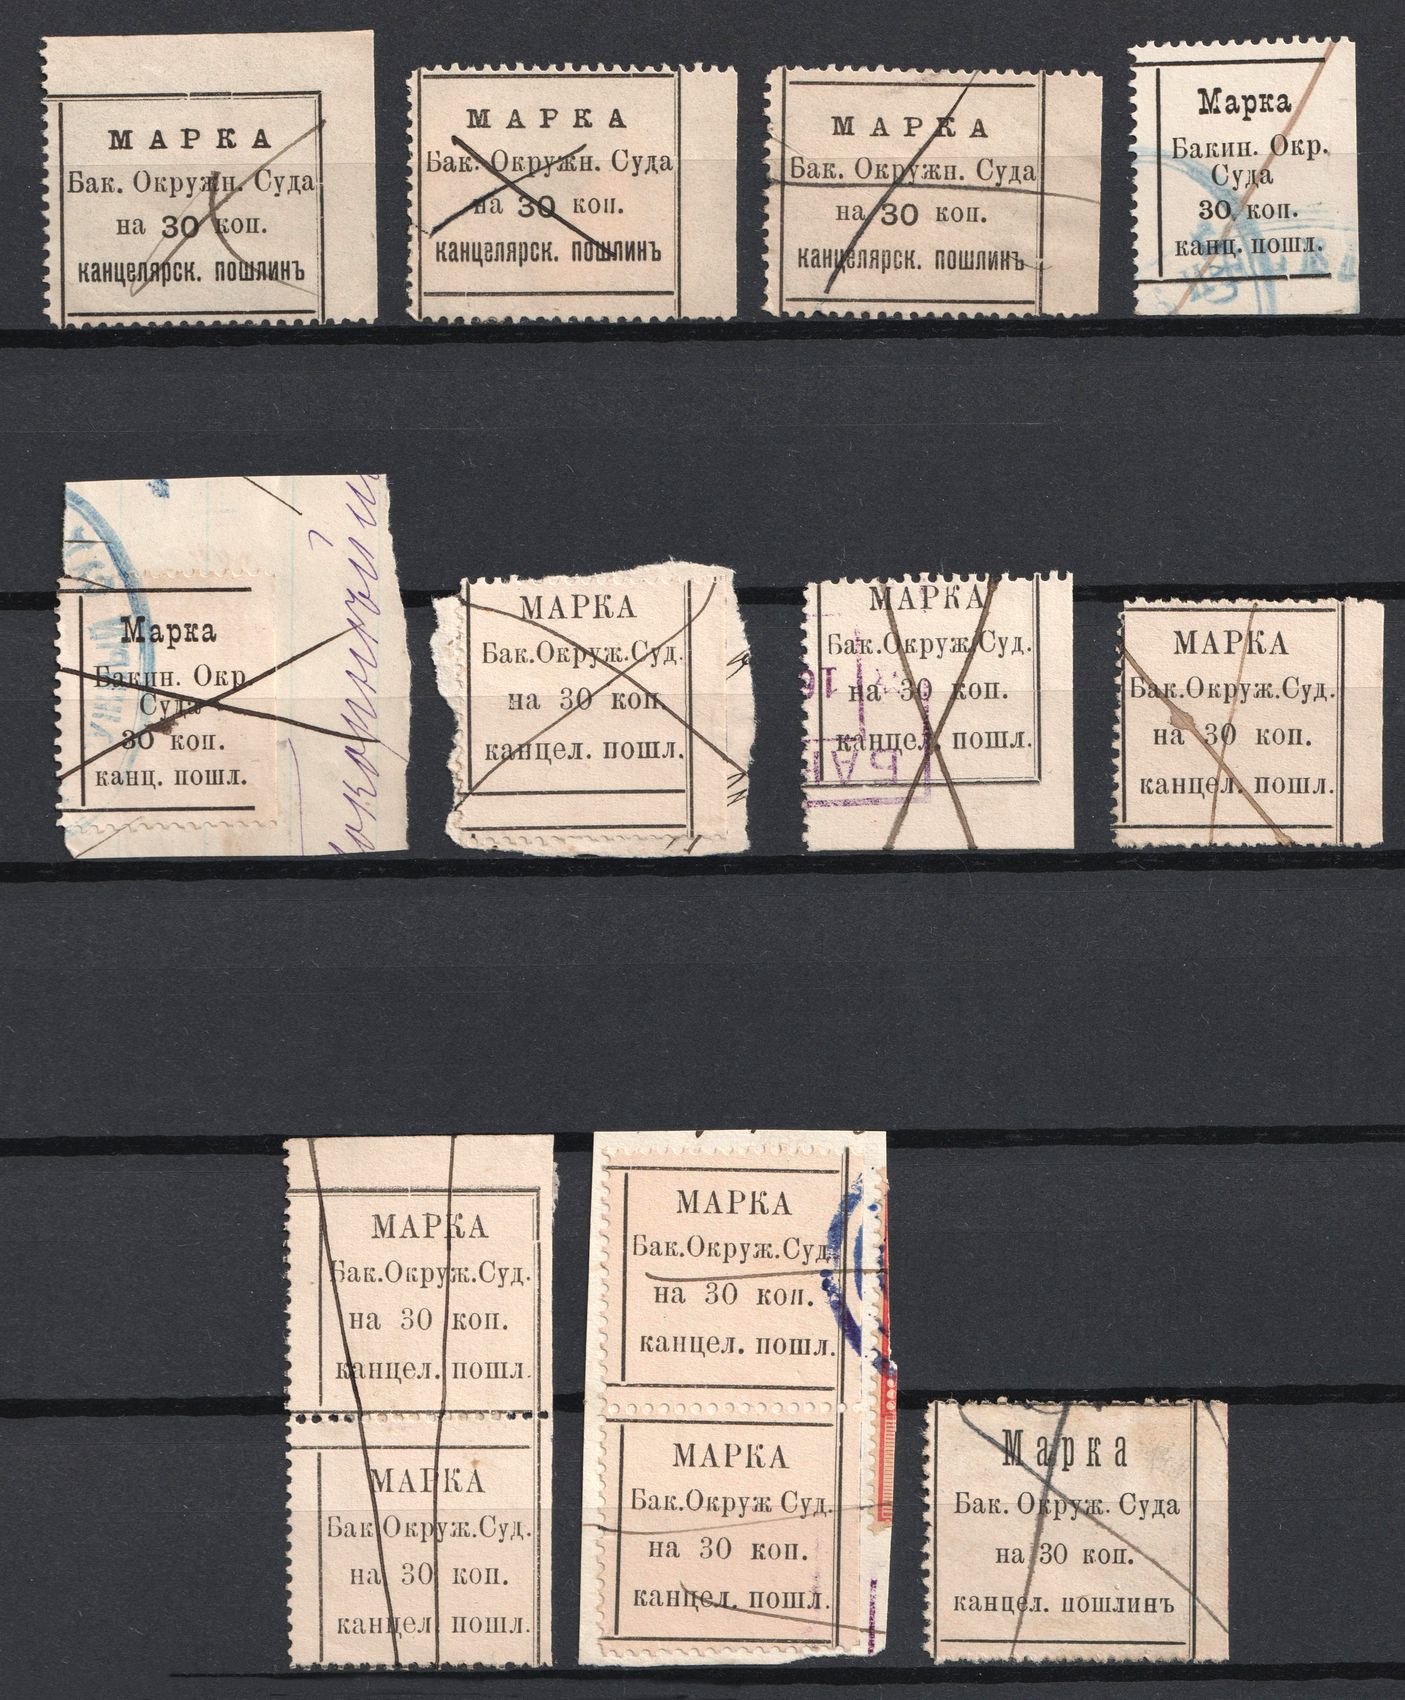 МАРКА
Бак. Окружн. Суда
на 30 коп.
канцелярск. пошлинъ
МАРКА
Бак. Окружн. Суда
на 30 коп.
канцелярск. пошлинъ
МАРКА
Бак. Окружн. Суда
на 30 коп.
канцелярск. пошлинъ
Марка
Бакин. Окр.
Суда
30 коп.
канц. пошл.
Марка
Бакин. Окр.
Суда
30 коп.
канц. пошл.
МАРКА
Бак.Окруж.Суд.
на 30 коп.
канцел. пошл.
МАРКА
Бак.Окруж.Суд.
на 30 коп.
канцел. пошл.
МАРКА
Бак.Окруж.Суд.
на 30 коп.
канцел. пошл.
МАРКА
Бак.Окруж.Суд.
на 30 коп.
канцел. пошл.
МАРКА
Бак.Окруж.Суд.
на 30 коп.
канцел. пошл.
МАРКА
Бак.Окруж.Суд.
на 30 коп.
канцел. пошл.
МАРКА
Бак.Окруж Суд.
на 30 коп.
канцел. пошл.
Марка
Бак. Окруж. Суда
на 30 коп.
канцел. пошлинъ